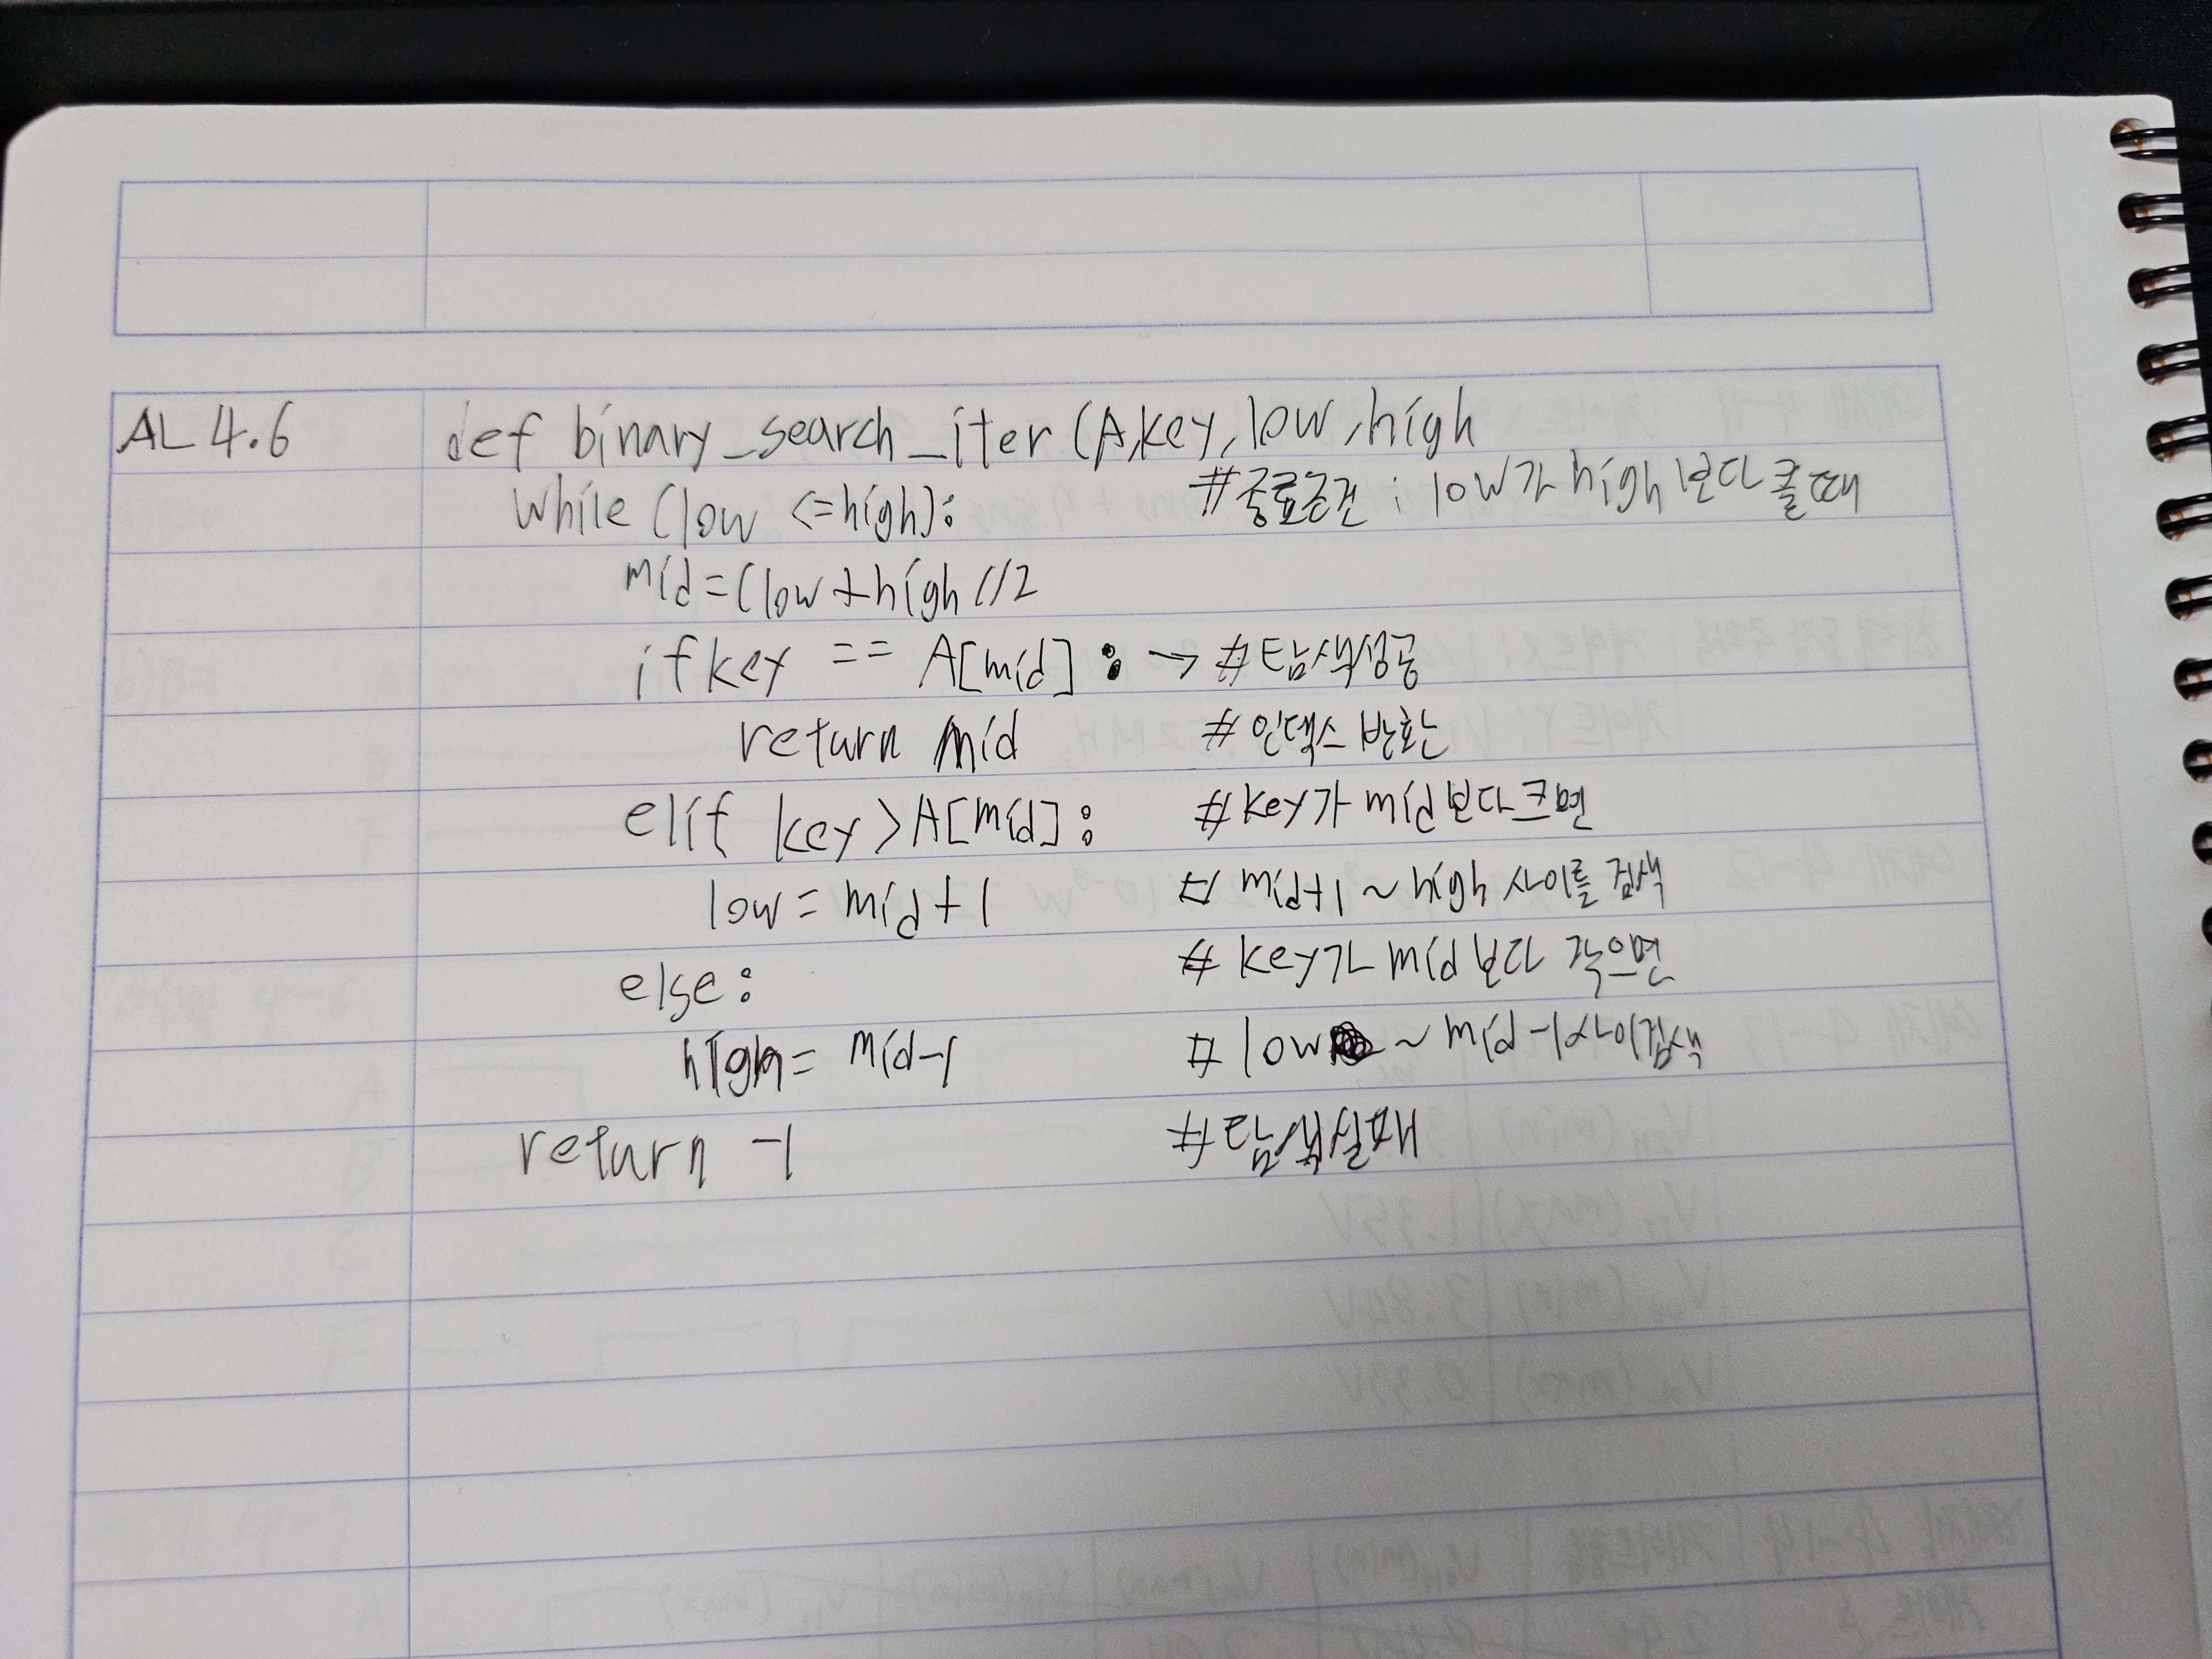 AL 4.6 def binary_search_iter (A,key,low,high
while (low <=high): #종료조건 : low가 high보다 클때
mid=(low+high(//2
if key == A[mid] : → #탐색성공
return mid #인덱스 반환
elif key>A[mid]: #key가 mid보다 크면
low = mid+1 # mid+1 ~ high 사이를 검색
else: # key가 mid보다 작으면
high= mid-1 # low ~ mid-1사이검색
return -1 #탐색실패